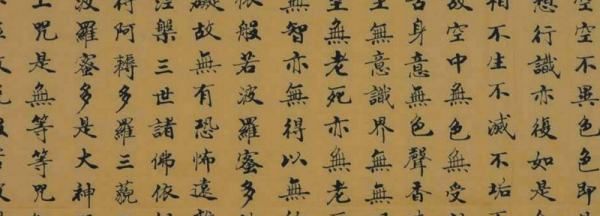 空空不異色色即是
想行識亦復如是
相不生不滅不垢
故空中無色無受
舌身意無色聲香
至無意識界無無
至無老死亦無老
無智亦無得以無
依般若波羅蜜多
礙故無有恐怖遠
涅槃三世諸佛依
得阿耨多羅三藐
波羅蜜多是大神
上咒是無等等咒